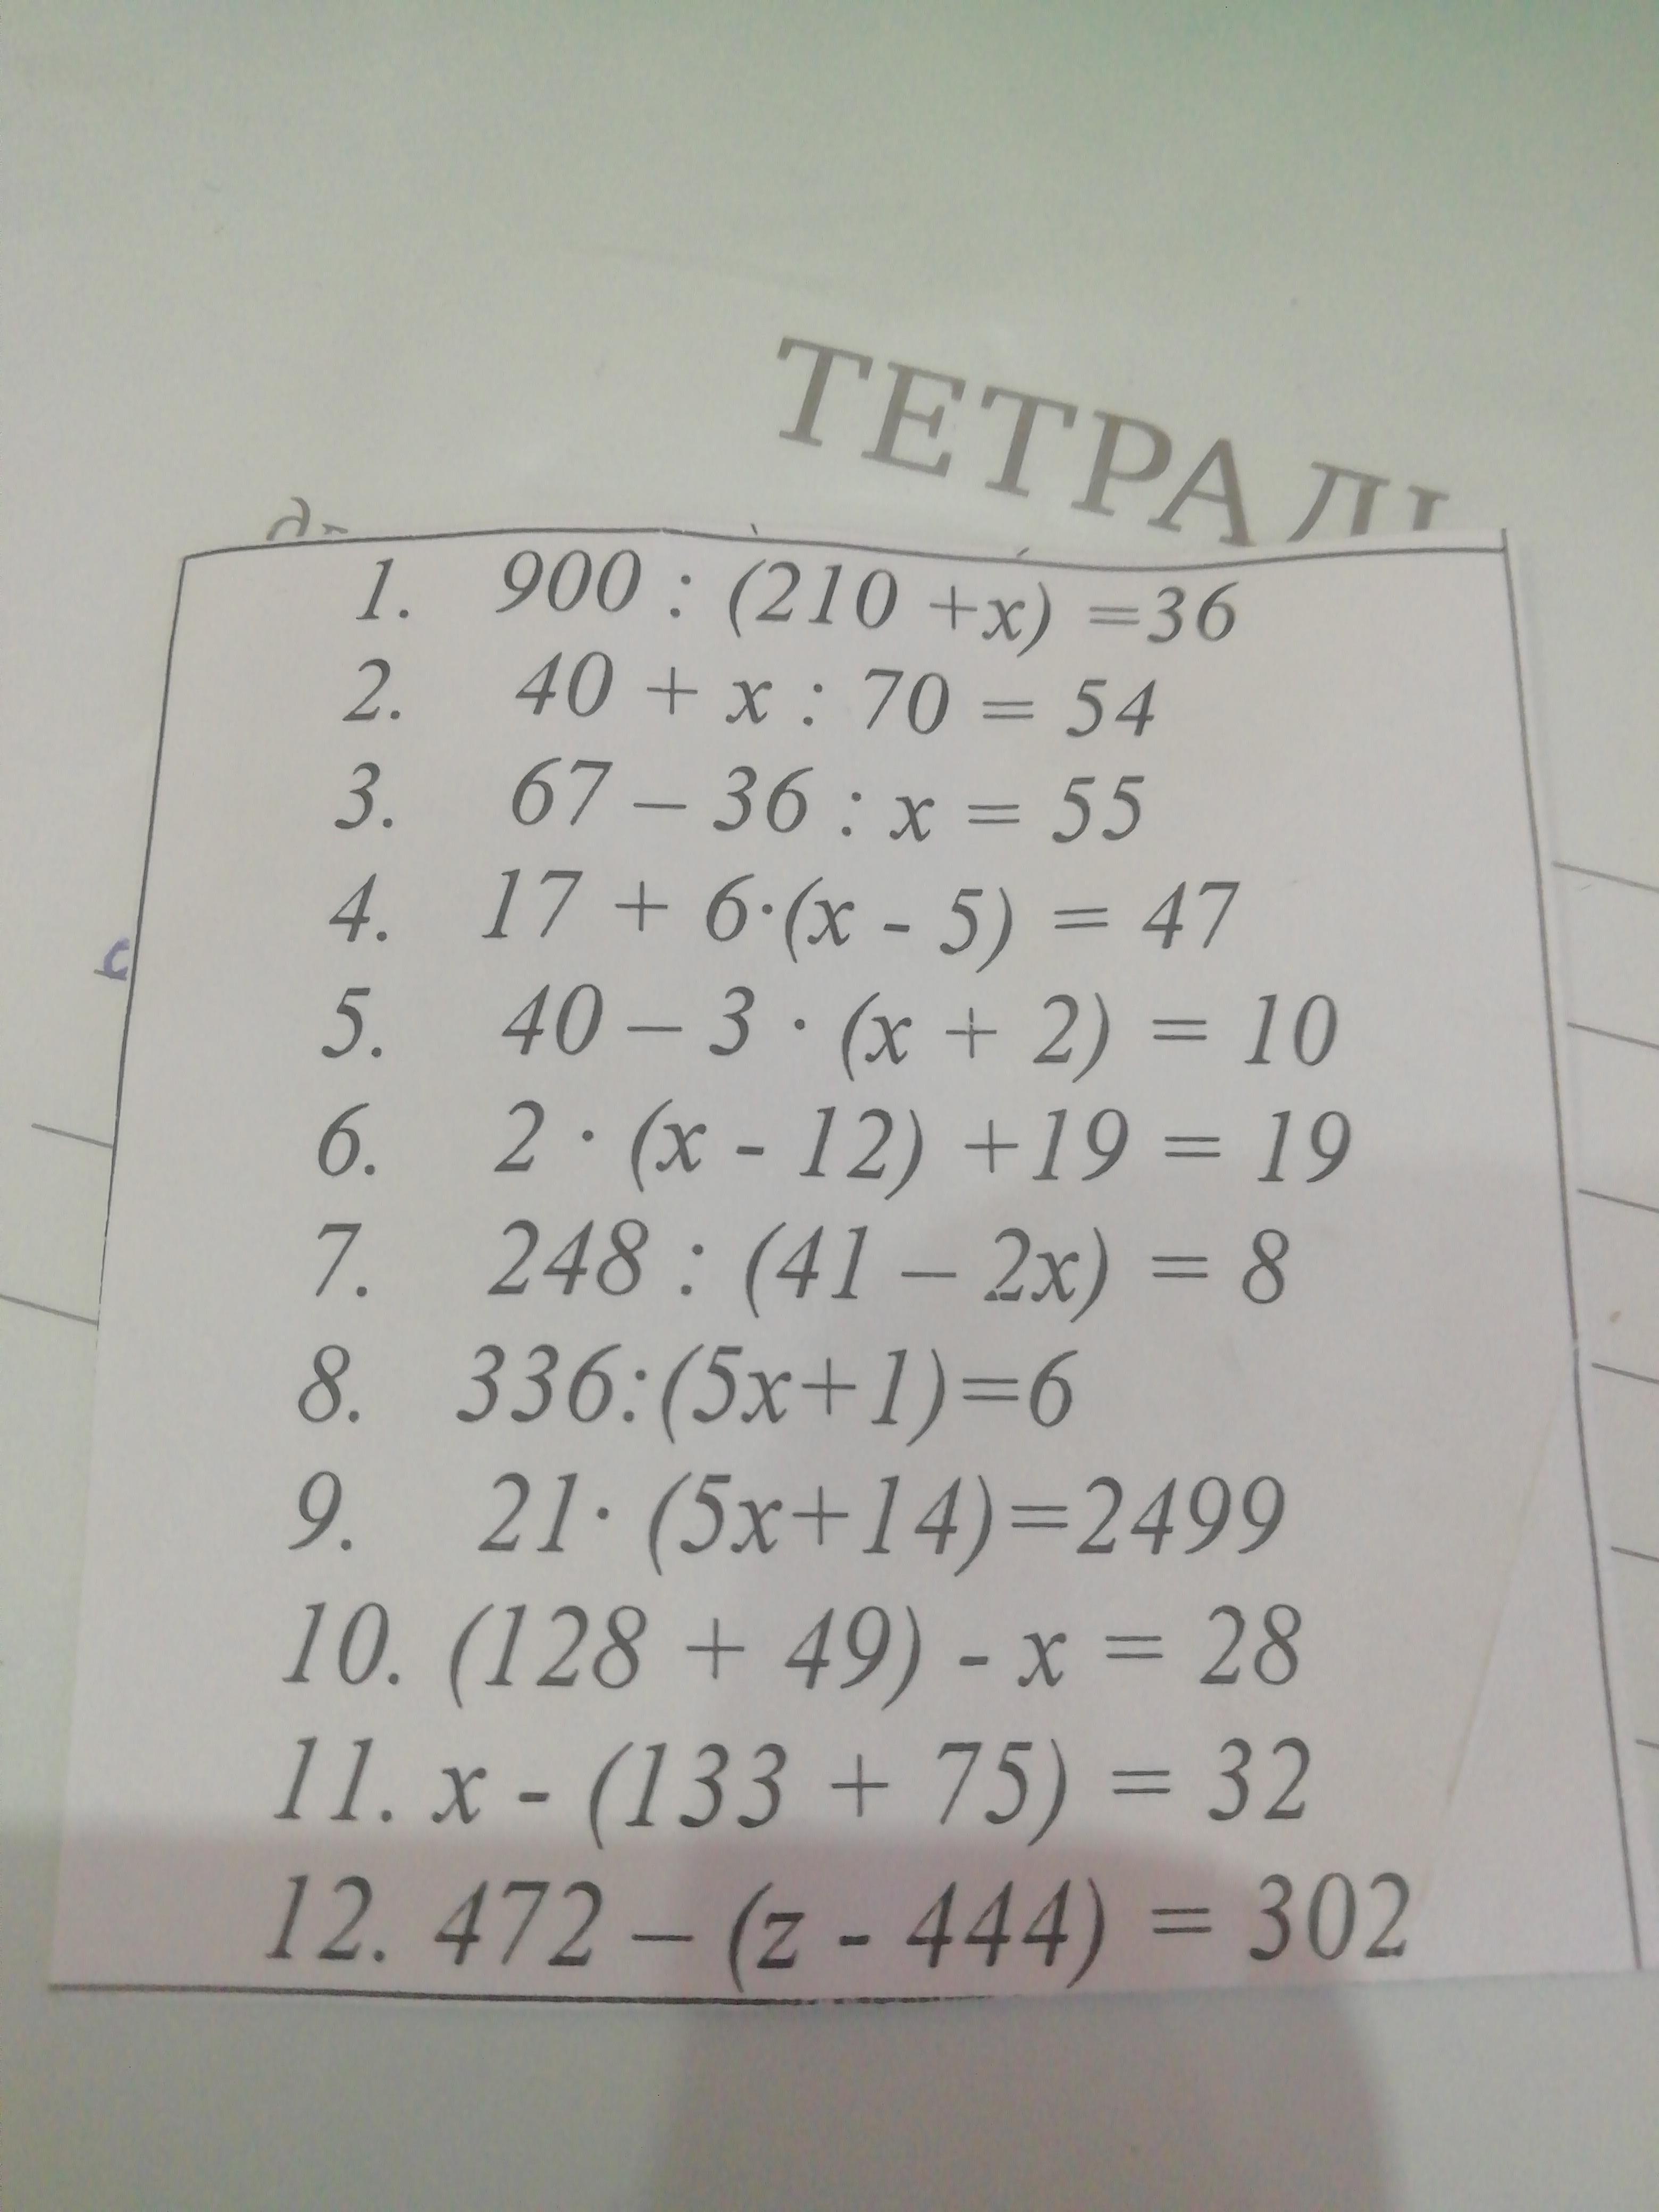 ТЕТРАДЬ
1. 900 : (210 +x) =36
2. 40 + x : 70 = 54
3. 67 – 36 : x = 55
4. 17 + 6·(x - 5) = 47
5. 40 – 3 · (x + 2) = 10
6. 2 · (x - 12) +19 = 19
7. 248 : (41 – 2x) = 8
8. 336:(5x+1)=6
9. 21· (5x+14)=2499
10. (128 + 49) - x = 28
11. x - (133 + 75) = 32
12. 472 – (z - 444) = 302